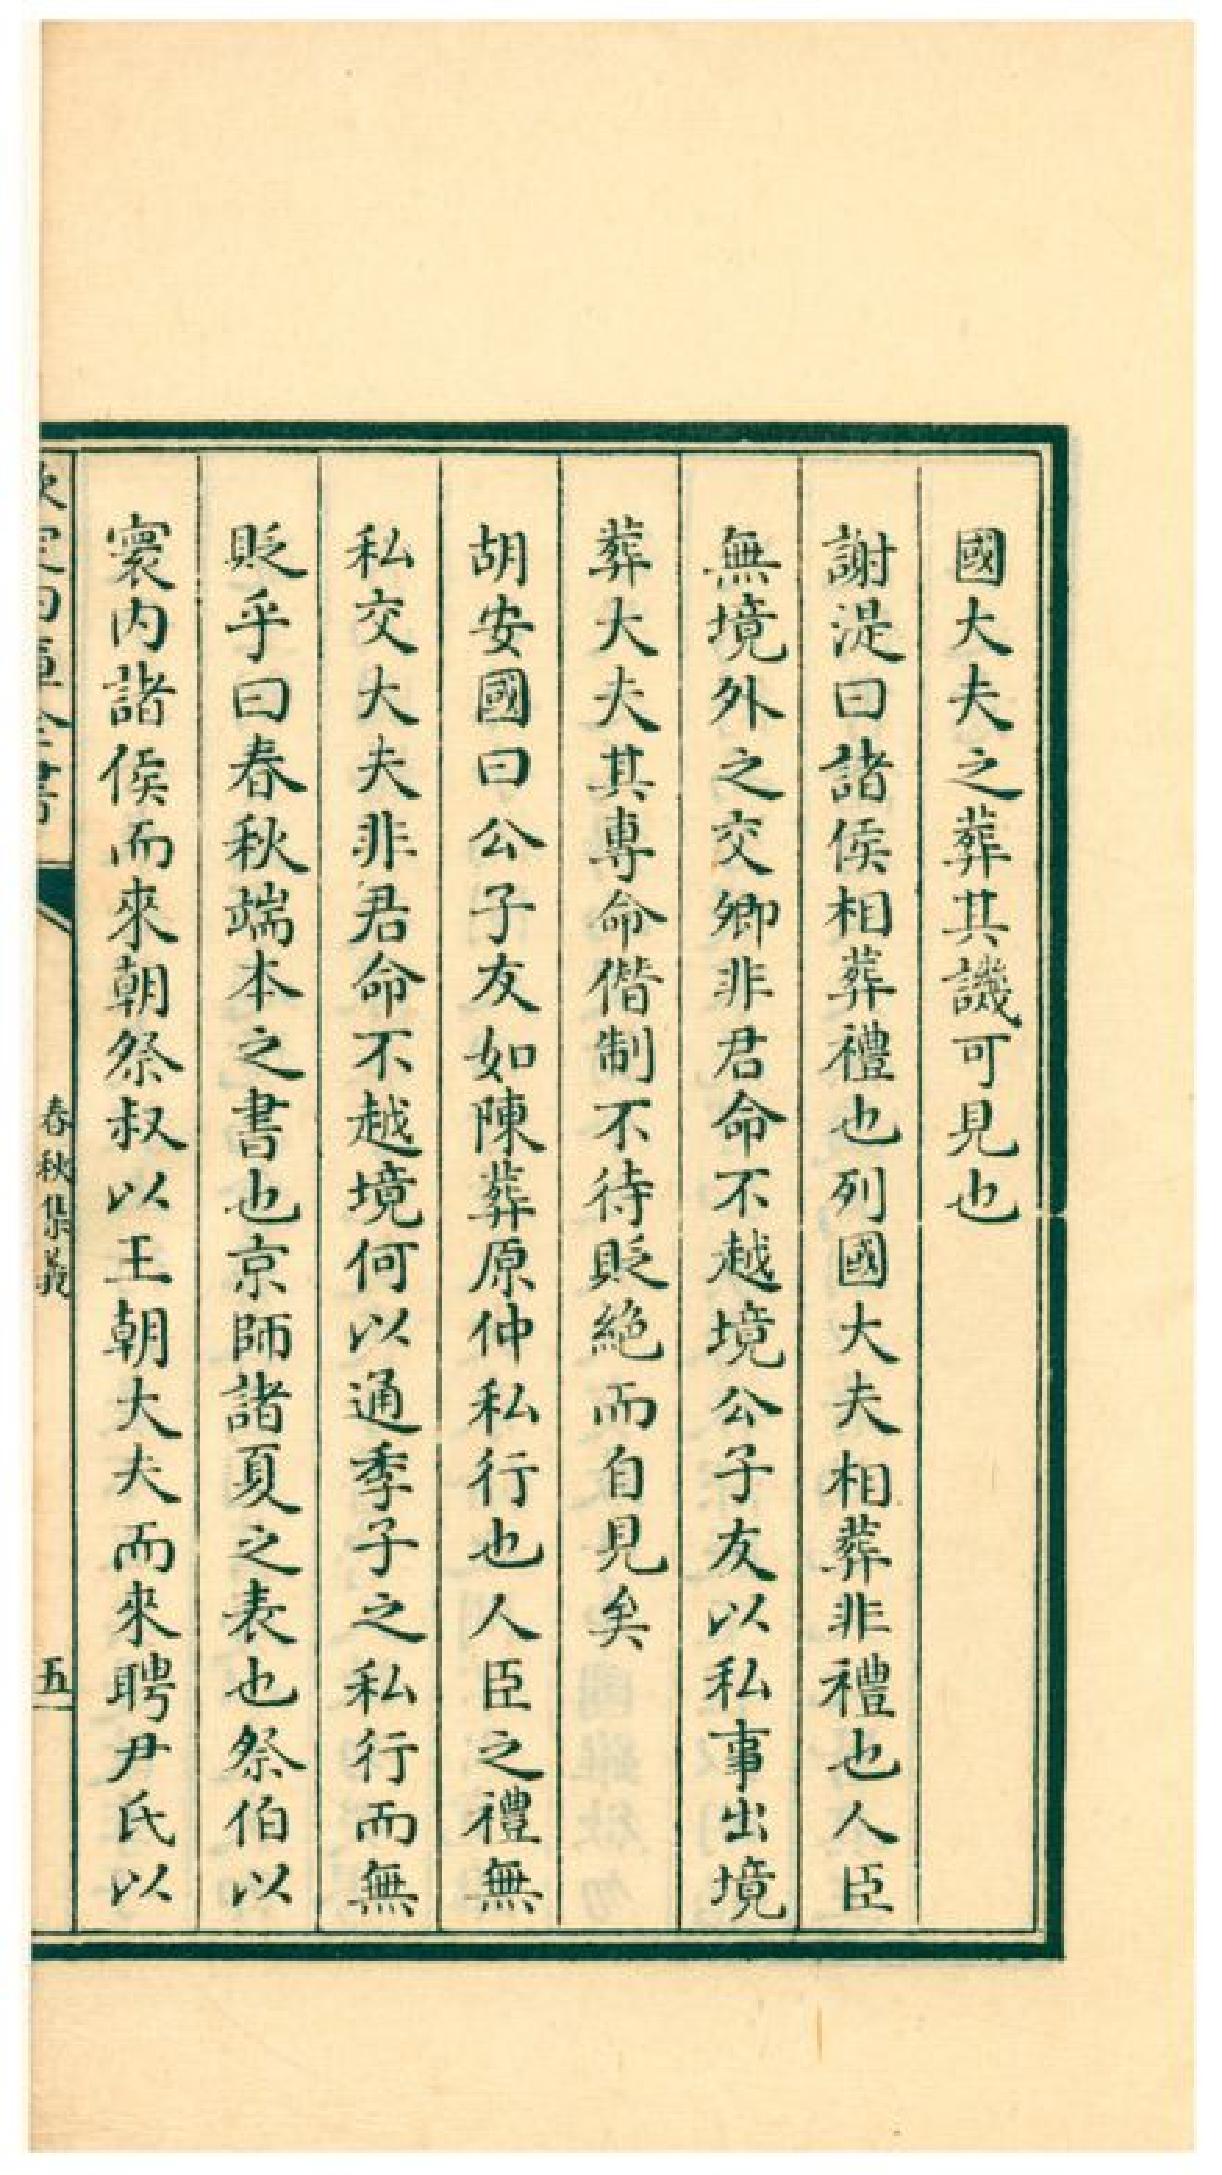 國大夫之葬其譏可見也
謝湜曰諸侯相葬禮也列國大夫相葬非禮也人臣
無境外之交卿非君命不越境公子友以私事出境
葬大夫其專命僭制不待貶絶而自見矣
胡安國曰公子友如陳葬原仲私行也人臣之禮無
私交大夫非君命不越境何以通季子之私行而無
貶乎曰春秋端本之書也京師諸夏之表也祭伯以
寰内諸侯而來朝祭叔以王朝大夫而來聘尹氏以
欽定四庫全書
春秋集義
五